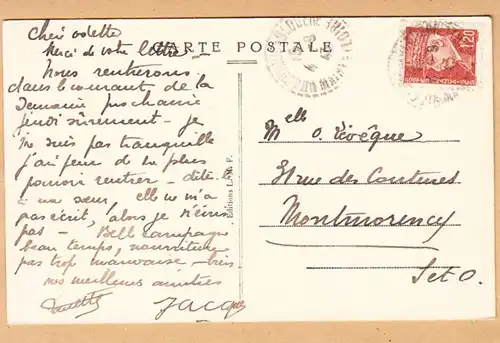 Cher odette
Merci de votre lettre
CARTE POSTALE
Nous rentrerons
dans le courant de la
Semaine prochaine
jeudi sûrement - je
ne suis pas tranquille
j'ai peur de ne plus
pouvoir rentrer - dites
à ma sœur, elle ne m'a
pas écrit, alors je n'écris
pas - Belle campagne
beau temps, nourriture
pas trop mauvaise - bien
nos meilleures amitiés
Jacques
Editions L. M. F.
1,20
Melle O. Levêque
31 rue des Coutures
Montmorency
S et O.